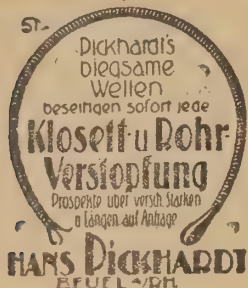 ST-
Dickhardt's
biegsame
Wellen
beseitigen sofort jede
Klosett- u Rohr-
Verstopfung
Prospekte über versch. Stärken
u Längen auf Anfrage
HANS DICKHARDT
BEUEL a/RH.